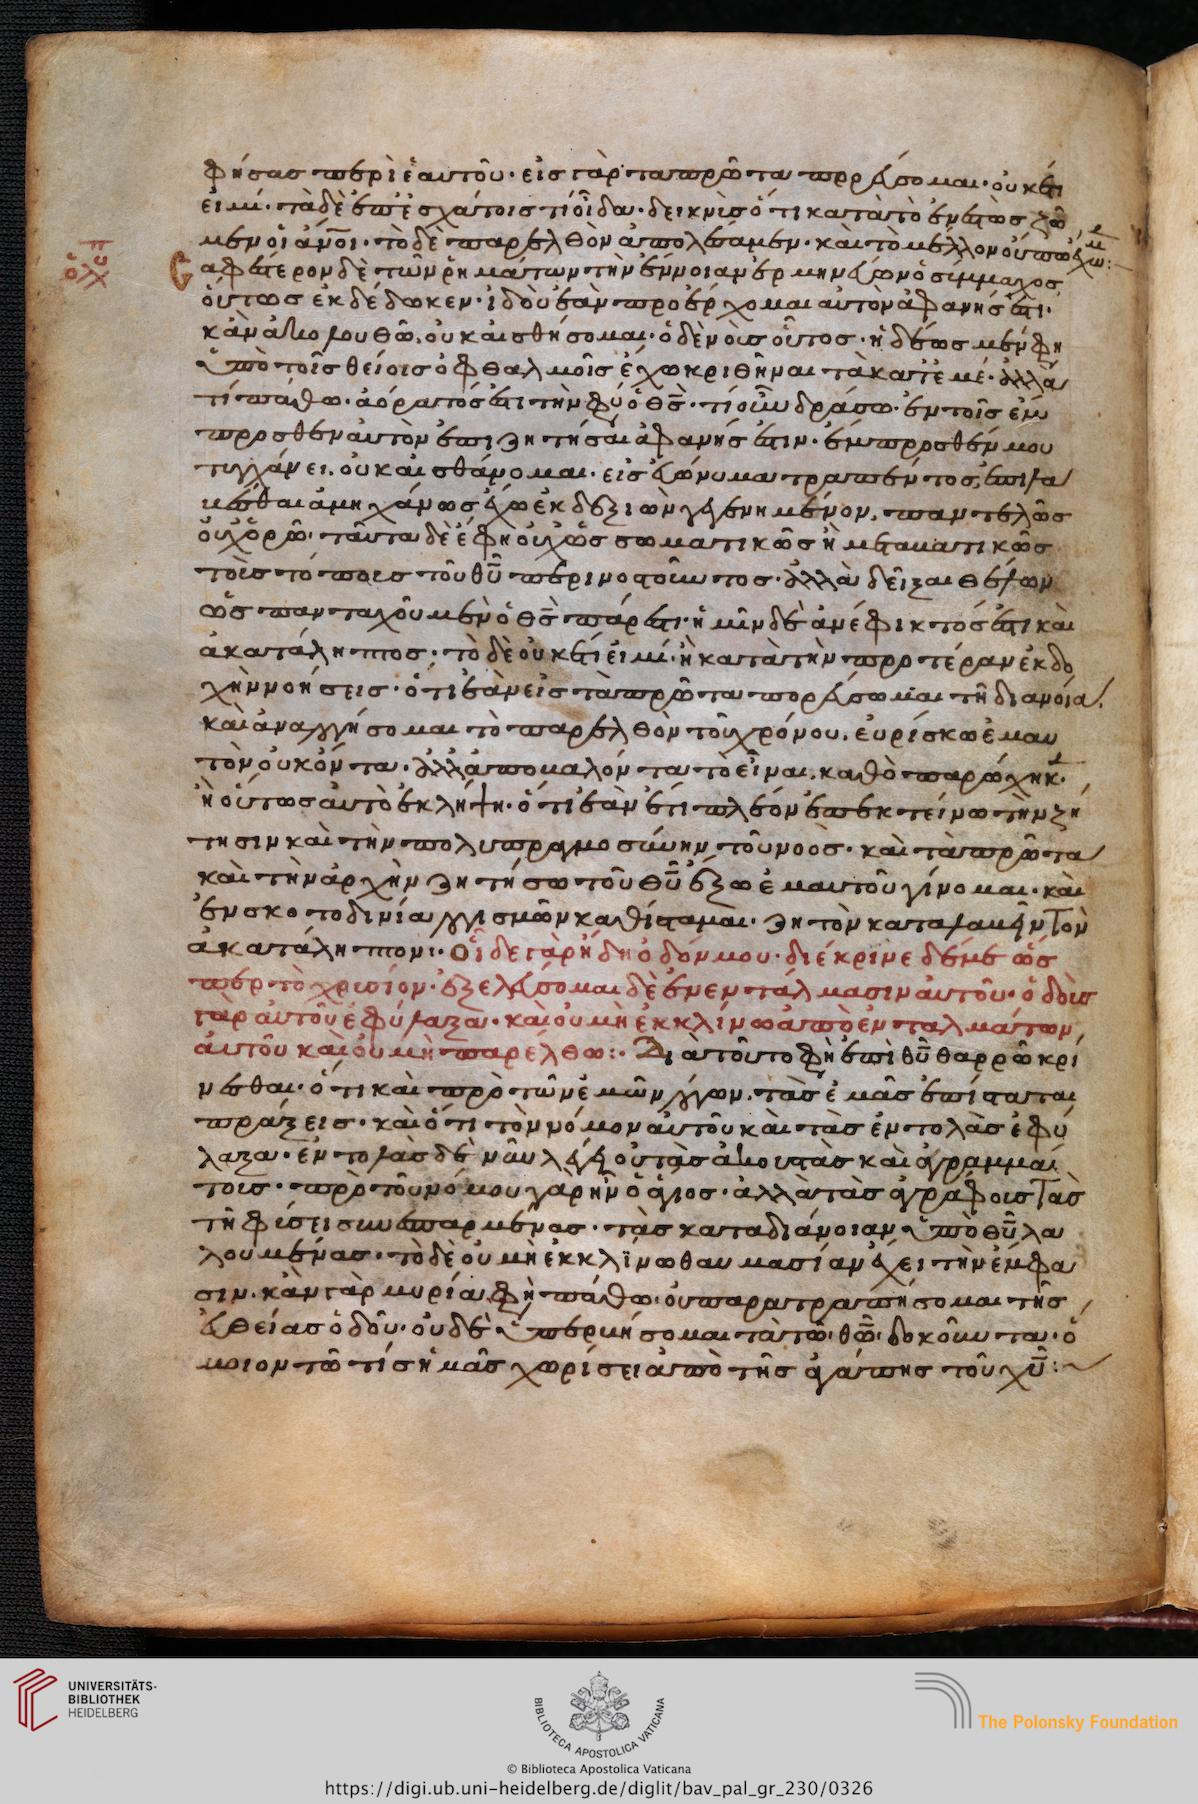 φήσας περὶ ἑαυτοῦ· εἰς γὰρ τὰ πρῶτα πορεύσομαι· οὐκ ἔτι
εἰμί· τὰ δὲ ἐπ' ἐσχάτοις τί οἶδα· δεικνὺς ὅτι κατὰ τὸ ἐνεστὼς ζῶ
μεν οἱ ἄνοι· τὸ δὲ παρελθὸν ἀπολέσαμεν· καὶ τὸ μέλλον οὔπω ἔχομεν:
σχο
σαφέστερον δὲ τῶν ῥημάτων τὴν ἔννοιαν ἑρμηνεύων ὁ σύμμαχος
οὕτως ἐκδέδωκεν· ἰδοὺ ἐὰν προέρχομαι αὐτὸν ἀφανής ἐστι·
κἂν ἀκολουθῶ, οὐκ αἰσθήσομαι· ὁ δὲ νοῦς οὗτος· ἡδέως μέν φη
ὑπὸ τοῖς θείοις ὀφθαλμοῖς ἔχω κριθῆναι τὰ κατ' ἐμέ· ἀλλὰ
τί πάθω· ἀόρατός ἐστι τὴν φύσιν ὁ θς· τί οὖν δράσω· ἐν τοῖς ἐμ
προσθεν αὐτὸν ἐπιζητῆσαι ἀφανής ἐστιν· ἔμπροσθέν μου
τυγχάνει, οὐκ αἰσθάνομαι· εἰς εὐώνυμα τραπέντος, ἐπιλα
βέσθαι ἀμηχάνως ἔχω ἐκ δεξιῶν γεγενημένον, παντελῶς
οὐχ ὁρῶ· ταῦτα δὲ ἔφη οὐχ ὡς σωματικῶς ἢ μεταβατικῶς
τοῖς τόποις τοῦ θυ περινοστοῦντος· ἀλλὰ δεῖξαι θέλων
ὡς πανταχοῦ μὲν ὁ θς πάρεστι· ἡμῖν δὲ ἀνέφικτός ἐστι καὶ
ἀκατάληπτος· τὸ δὲ οὐκ ἔτι εἰμί· ἢ κατὰ τὴν προτέραν ἐκδο
χὴν νοήσεις· ὅτι ἐὰν εἰς τὰ πρῶτα πορεύσωμαι τῇ διανοίᾳ,
καὶ ἀναζητήσομαι τὸ παρελθὸν τοῦ χρόνου, εὑρίσκω ἐμαυ
τὸν οὐκ ὄντα· ἀλλ' ἀπομαλόντα τὸ εἶναι, καθὸ παρῴχηκε·
ἢ οὕτως αὐτὸ ἐκλήψῃ· ὅτι ἐὰν ἐπὶ πλέον ἐπεκτείνω τὴν ζή
τησιν καὶ τὴν πολυπραγμοσύνην τοῦ νοός· καὶ τὰ πρῶτα
καὶ τὴν ἀρχὴν ζητήσω τοῦ θυ ἔξω ἐμαυτοῦ γίνομαι· καὶ
ἐν σκοτοδινίᾳ λογισμῶν καθίσταμαι· ζητῶν καταλαβεῖν τὸν
ἀκατάληπτον· Οἶδε γὰρ ἤδη ὁδόν μου· διέκρινε δέ με ὡς
περ τὸ χρυσίον· ἐξελεύσομαι δὲ ἐν ἐντάλμασιν αὐτοῦ· ὁδοὺς
γὰρ αὐτοῦ ἐφύλαξα· καὶ οὐ μὴ ἐκκλίνω ἀπὸ ἐνταλμάτων
αὐτοῦ καὶ οὐ μὴ παρέλθω:· Διὰ τοῦτο φὴ ἐπὶ θυ θαρρῶ κρί
νεσθαι· ὅτι καὶ πρὸ τῶν ἐμῶν λόγων, τὰς ἐμὰς ἐπίσταται
πράξεις· καὶ ὅτι τὸν νόμον αὐτοῦ καὶ τὰς ἐντολὰς ἐφύ
λαξα· ἐντολὰς δὲ νῦν λέγει οὐ τὰς ἀκουστὰς καὶ γραμμα
τοις· πρὸ τοῦ νόμου γὰρ ἦν ὁ ἅγιος· ἀλλὰ τὰς ἀγράφοις τὰς
τῇ φύσει συνεσπαρμένας· τὰς κατὰ διάνοιαν ὑπὸ θυ λα
λουμένας· τὸ δὲ οὐ μὴ ἐκκλίνω θαυμασίαν ἔχει τὴν ἔμφα
σιν· κἂν γὰρ μυρία φὴ πάθω· οὐ παρατραπήσομαι τῆς
εὐθείας ὁδοῦ· οὐδὲ ὑπερβήσομαι τὰ τῷ θω δοκοῦντα· ὅ
μοιον τῷ τίς ἡμᾶς χωρίσει ἀπὸ τῆς ἀγάπης τοῦ χυ:
UNIVERSITÄTS-
BIBLIOTHEK
HEIDELBERG
BIBLIOTECA APOSTOLICA VATICANA
The Polonsky Foundation
© Biblioteca Apostolica Vaticana
https://digi.ub.uni-heidelberg.de/diglit/bav_pal_gr_230/0326